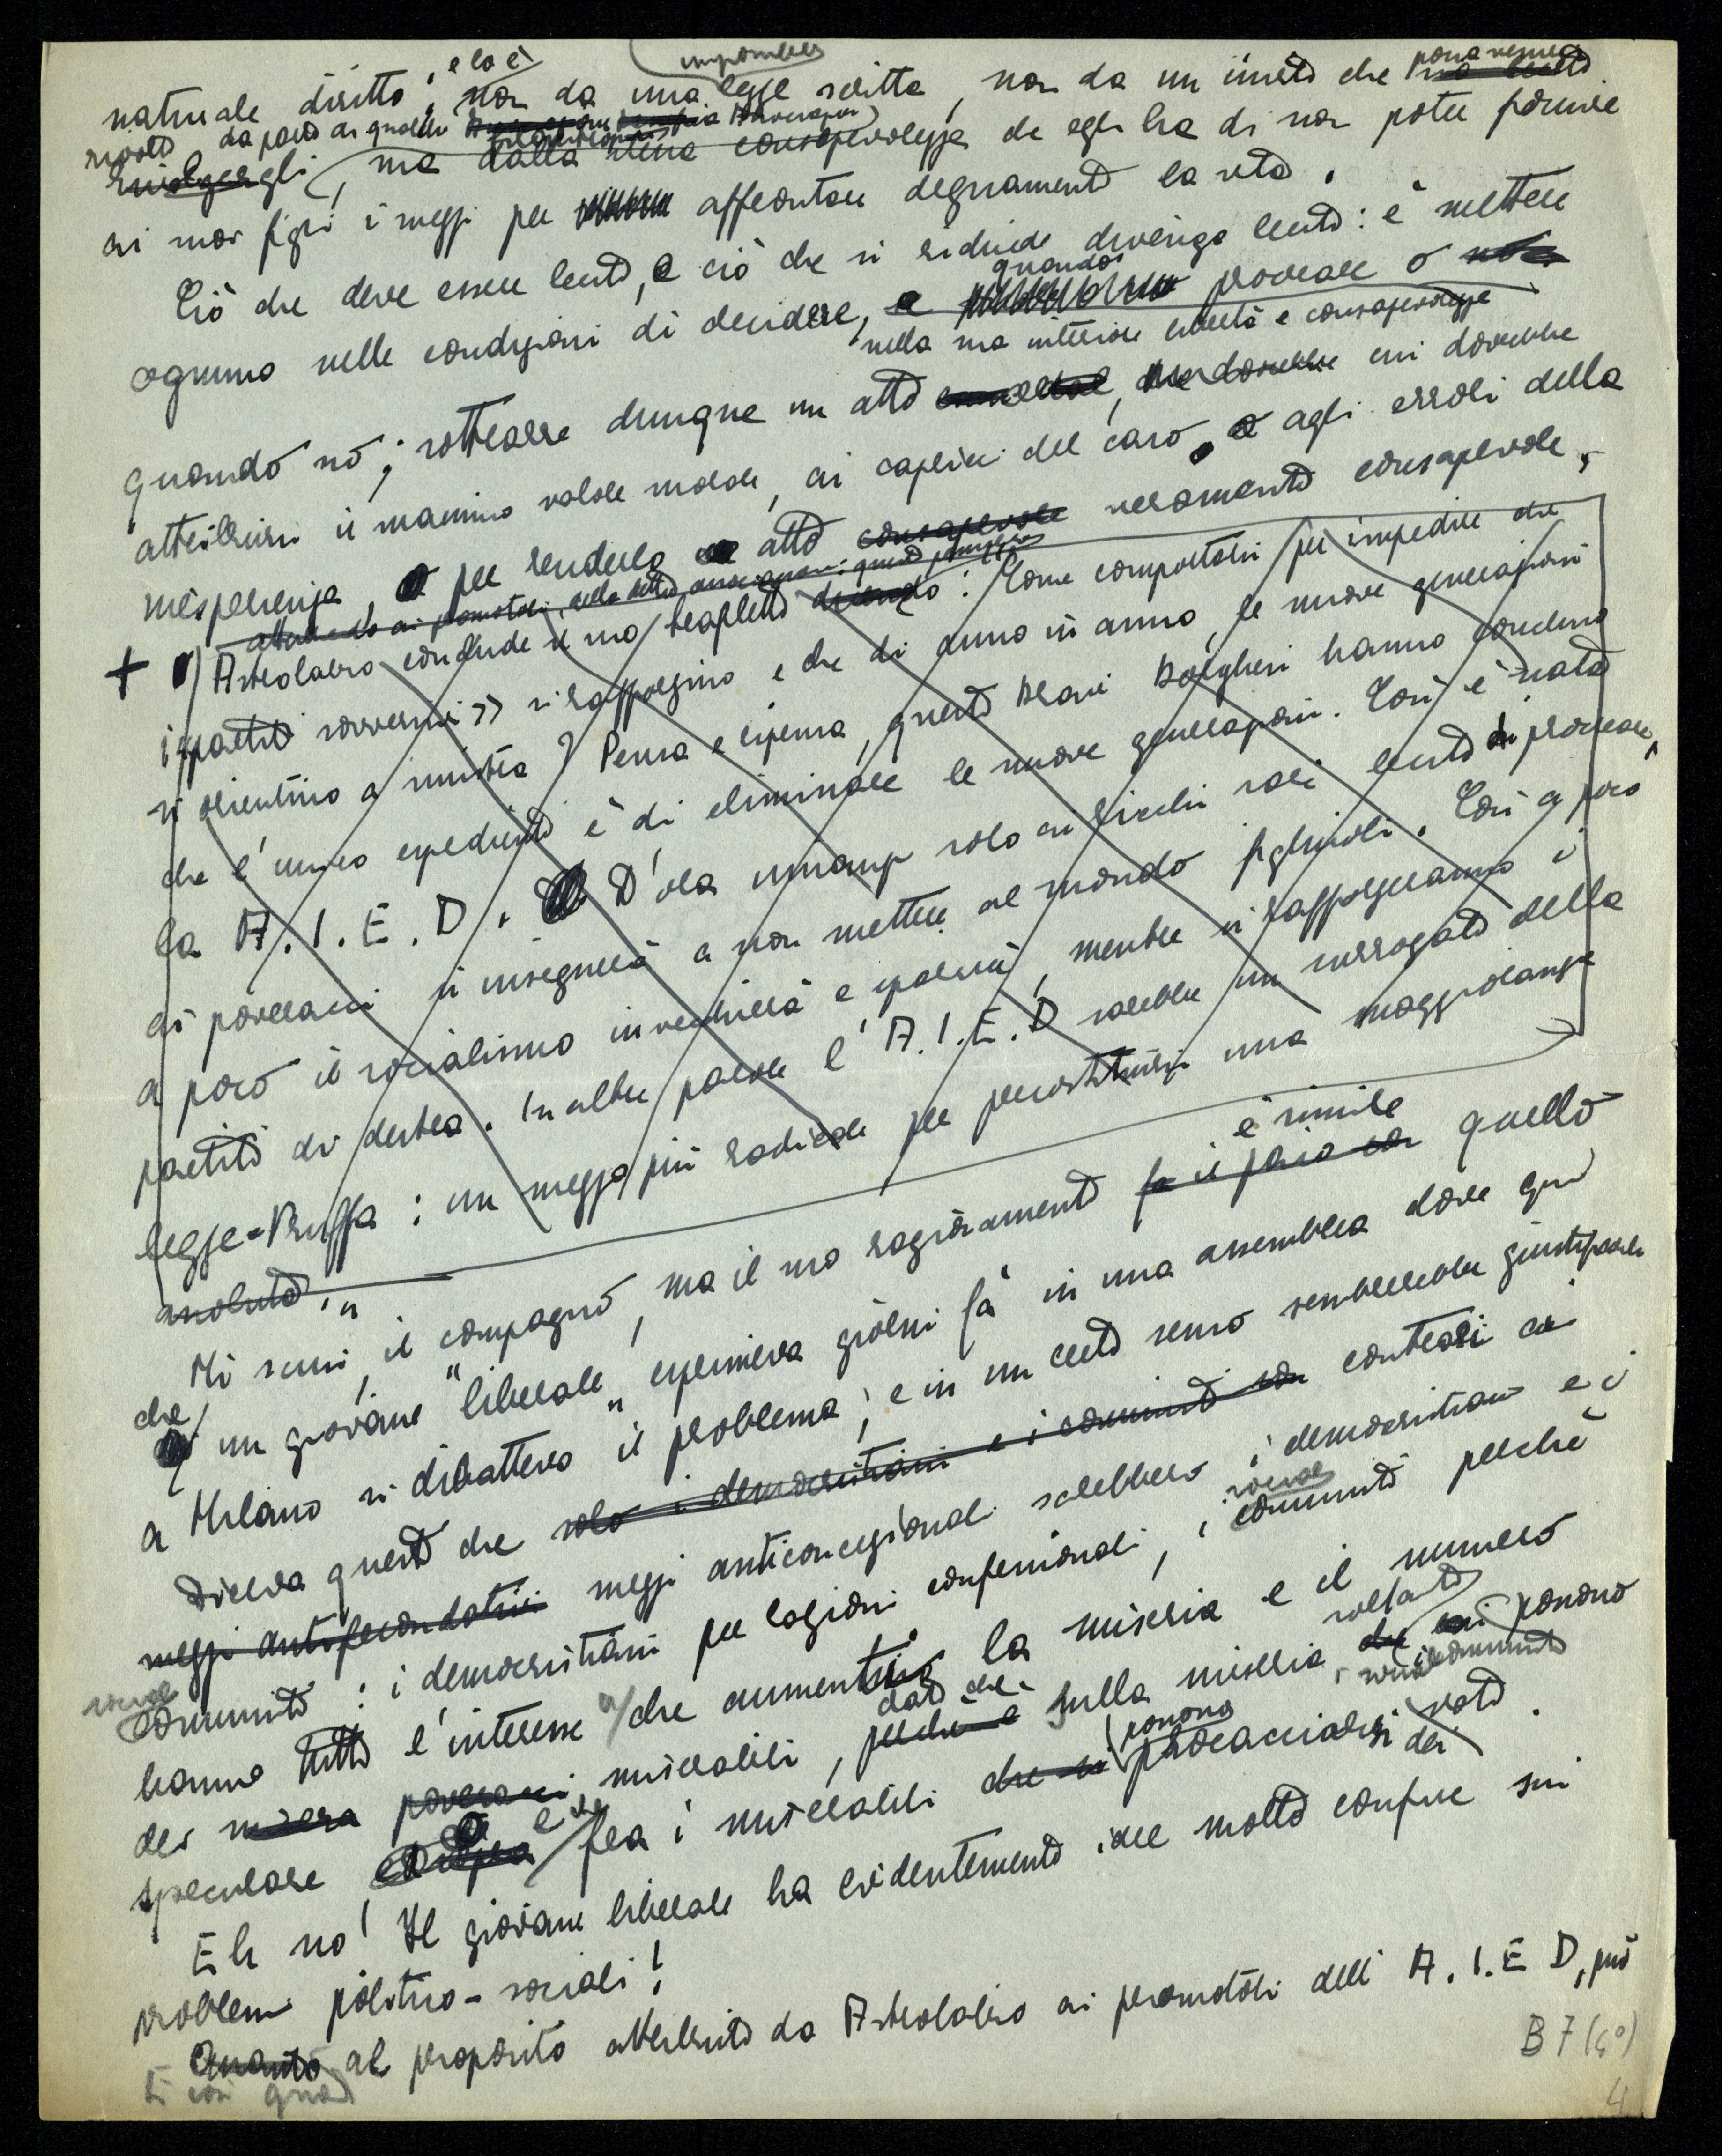 naturale diritto; e lo è, non da una imponibile legge scritta, non da un invito che possa essere
rivolto da parte di qualche
rivolgergli, ma dalla stessa consapevolezza che egli ha di non poter fornire
ai suoi figli i mezzi per affrontare degnamente la vita.
Ciò che deve essere lecito, e ciò che si richiede divenga lecito: è mettere
ognuno nelle condizioni di decidere, quando procreare o
nella sua interiore libertà e consapevolezza
quando no; sottrarre dunque un atto, cui dovrebbe
attribuirsi il massimo valore morale, ai capricci del caso, agli errori della
inesperienza, per renderlo atto consapevole veramente consapevole.
attribuendo ai promotori della detta associazione questo pensiero
+ Astrolabio conclude il suo trapletto dicendo: "Come comportarsi per impedire che
i partiti sovversivi>> si rafforzino e che di anno in anno, le nuove generazioni
si orientino a sinistra? Pensa e ripensa, questi bravi borghesi hanno concluso
che l'unico espediente è di eliminare le nuove generazioni. Così è nata
la A.I.E.D. D'ora innanzi solo ai ricchi sarà lecito di procreare,
ai poveracci si insegnerà a non mettere al mondo figliuoli. Così a poco
a poco il socialismo invecchierà e sparirà, mentre si rafforzeranno i
partiti di destra. In altre parole l'A.I.E.D sarebbe un surrogato della
legge-truffa: un mezzo più radicale per precostituirsi una maggioranza
assoluta."
Mi scusi, il compagno, ma il suo ragionamento fa il paio con è simile quello
che un giovane "liberale" esprimeva giorni fa in una assemblea dove qui
a Milano si dibatteva il problema; e in un certo senso sembrerebbe giustificarlo
Diceva questi che solo i democristiani e i comunisti son contrari ai
mezzi antifecondativi mezzi anticoncezionali sarebbero i democristiani e i
comunisti: i democristiani per ragioni confessionali, i comunisti perchè
hanno tutto l'interesse a che aumentino la miseria e il numero
dei poveracci miserabili, perchè è dato che sulla miseria soltanto essi possono
speculare e fra i miserabili che si possono procacciarsi dei voti.
Eh no! Il giovane liberale ha evidentemente idee molto confuse sui
problemi politico-sociali!
Quanto al proposito attribuito da Astrolabio ai promotori dell'A.I.E D, può
E così quanto
B7(6°)
4